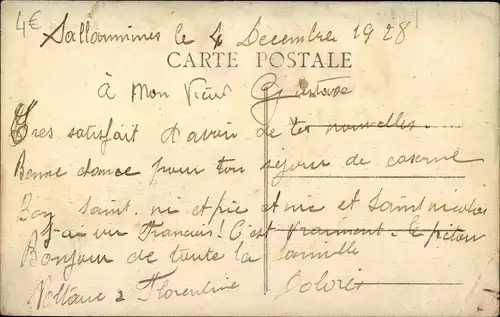 4€
Sallaumines le 4 Decembre 1928
CARTE POSTALE
à Mon Vieux Gustave
Tres satisfait d'avoir de tes nouvelles.
Bonne chance pour ton séjour de caserne
Bon Saint. ni et pie et nic et Saint nicolas
J'ai vu Francais! C'est vraiment. le piton
Bonjour de toute la famille
Florentine Dolores